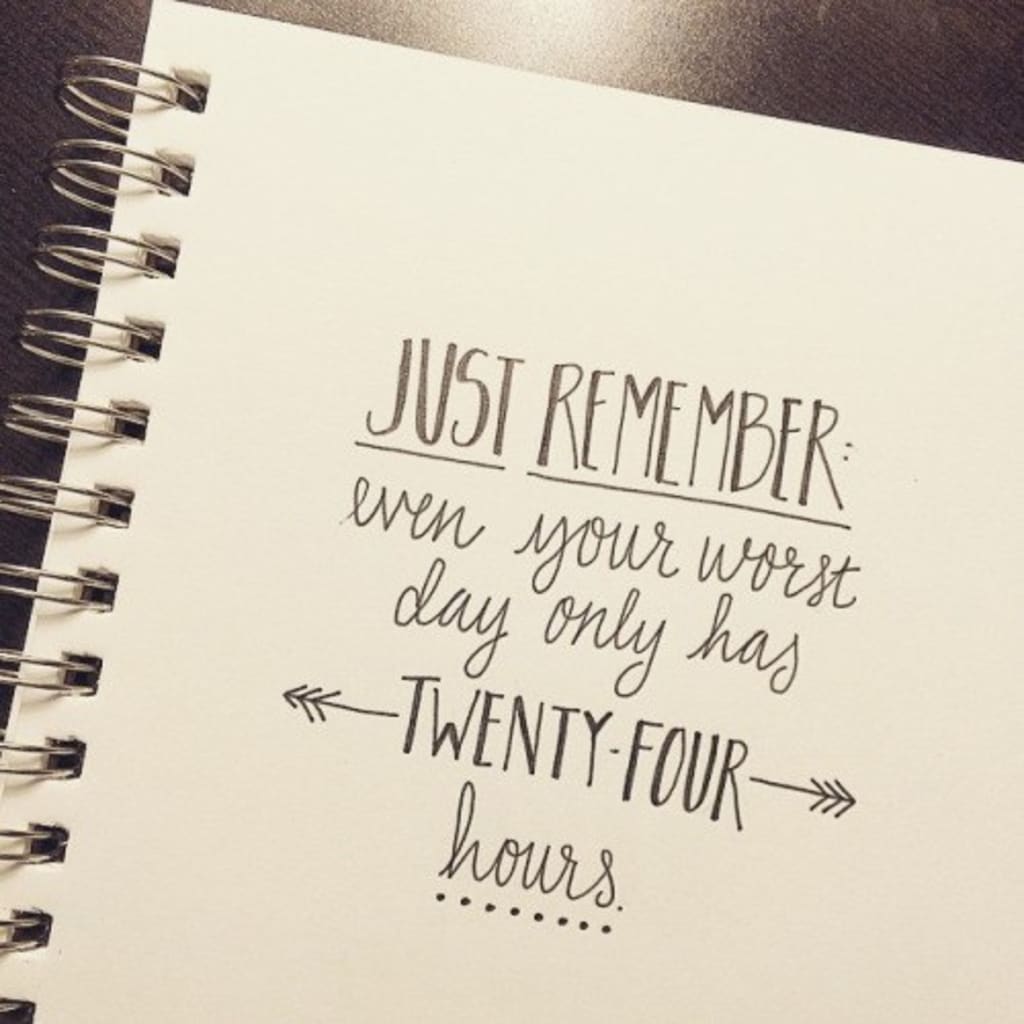 JUST REMEMBER:
even your worst
day only has
TWENTY-FOUR
hours.